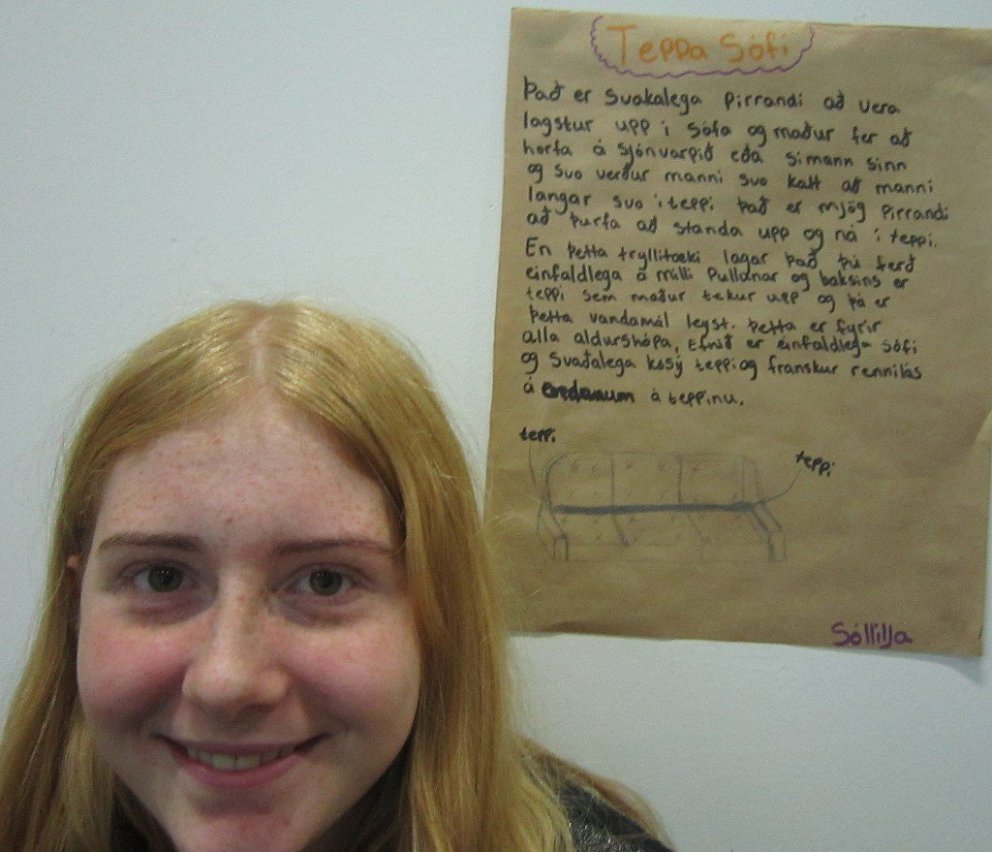 Teppa Sófi
Það er svakalega pirrandi að vera
lagstur upp í sófa og maður fer að
horfa á sjónvarpið eða símann sinn
og svo verður manni svo kalt að manni
langar svo í teppi það er mjög pirrandi
að þurfa að standa upp og ná í teppi.
En þetta tryllitæki lagar það þú ferð
einfaldlega á milli pullunar og baksins er
teppi sem maður tekur upp og þá er
þetta vandamál leyst. Þetta er fyrir
alla aldurshópa, Efnið er einfaldlega sófi
og svaðalega kósý teppi og franskur rennilás
á endanum á teppinu.
teppi
teppi
Sóllilja